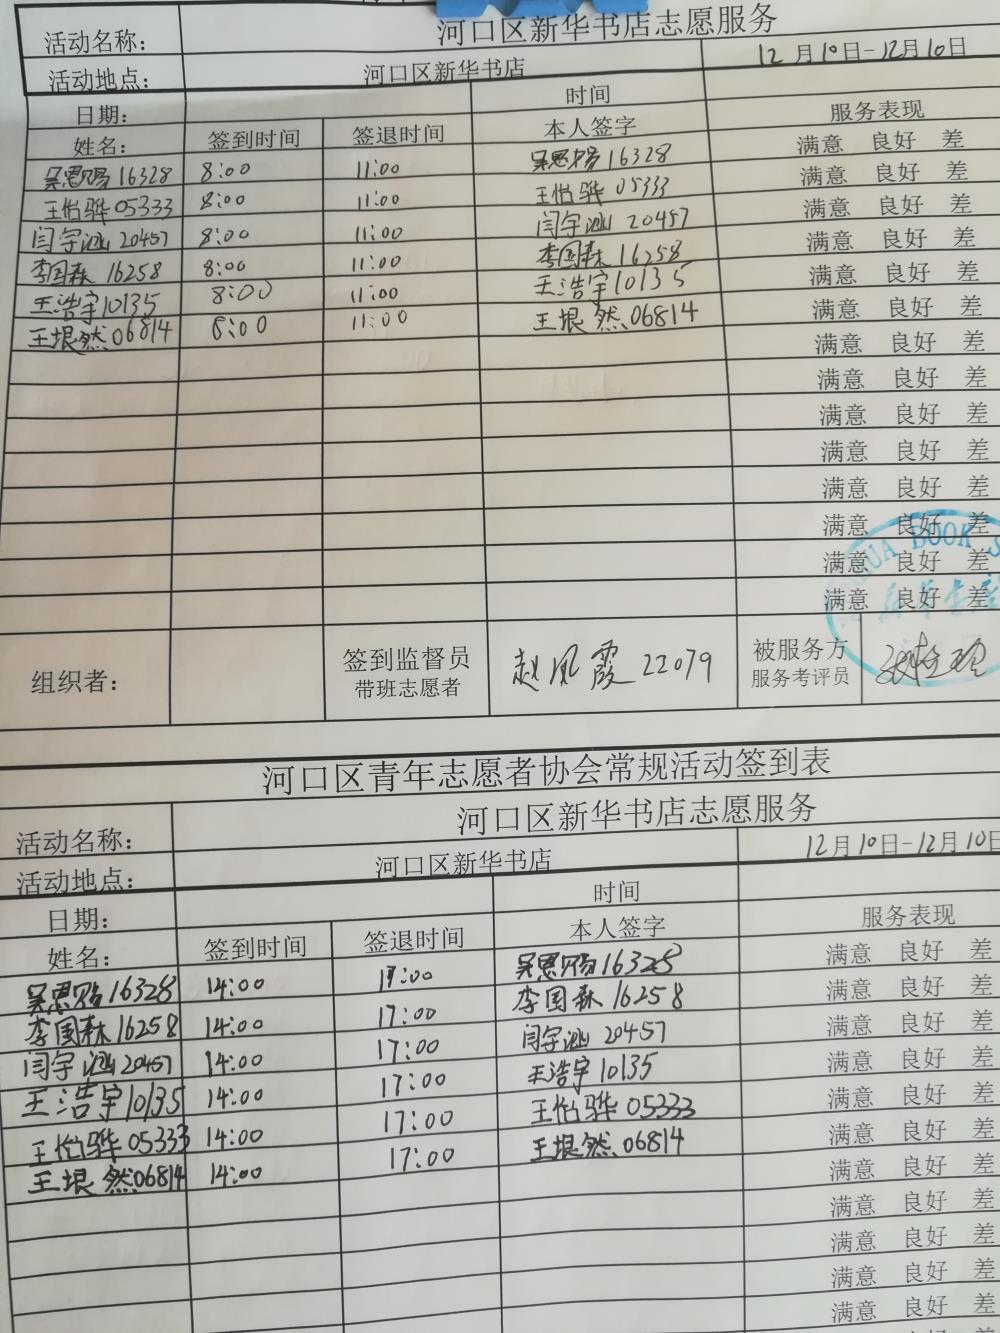 活动名称： 河口区新华书店志愿服务
活动地点： 河口区新华书店 12月10日-12月10日
日期： 时间
姓名： 签到时间 签退时间 本人签字 服务表现
吴思赐16328 8:00 11:00 吴思赐16328 满意 良好 差
王怡骅05333 8:00 11:00 王怡骅 05333 满意 良好 差
闫宇汕 20457 8:00 11:00 闫宇汕 20457 满意 良好 差
李国森 16258 8:00 11:00 李国森 16258 满意 良好 差
王浩宇10135 8:00 11:00 王浩宇10135 满意 良好 差
王垠然06814 8:00 11:00 王垠然06814 满意 良好 差
满意 良好 差
满意 良好 差
满意 良好 差
满意 良好 差
满意 良好 差
满意 良好 差
满意 良好 差
满意 良好 差
HUA BOOK S
新华书店
组织者： 签到监督员 赵凤霞22079 被服务方
带班志愿者 服务考评员
河口区青年志愿者协会常规活动签到表
活动名称： 河口区新华书店志愿服务
活动地点： 河口区新华书店 12月10日-12月10日
日期： 时间
姓名： 签到时间 签退时间 本人签字 服务表现
吴思赐16328 14:00 17:00 吴思赐16328 满意 良好 差
李国森16258 14:00 17:00 李国森16258 满意 良好 差
闫宇汕20457 14:00 17:00 闫宇汕 20457 满意 良好 差
王浩宇10135 14:00 17:00 王浩宇10135 满意 良好 差
王怡骅05333 14:00 17:00 王怡骅 05333 满意 良好 差
王垠然06814 14:00 17:00 王垠然06814 满意 良好 差
满意 良好 差
满意 良好 差
满意 良好 差
满意 良好 差
满意 良好 差